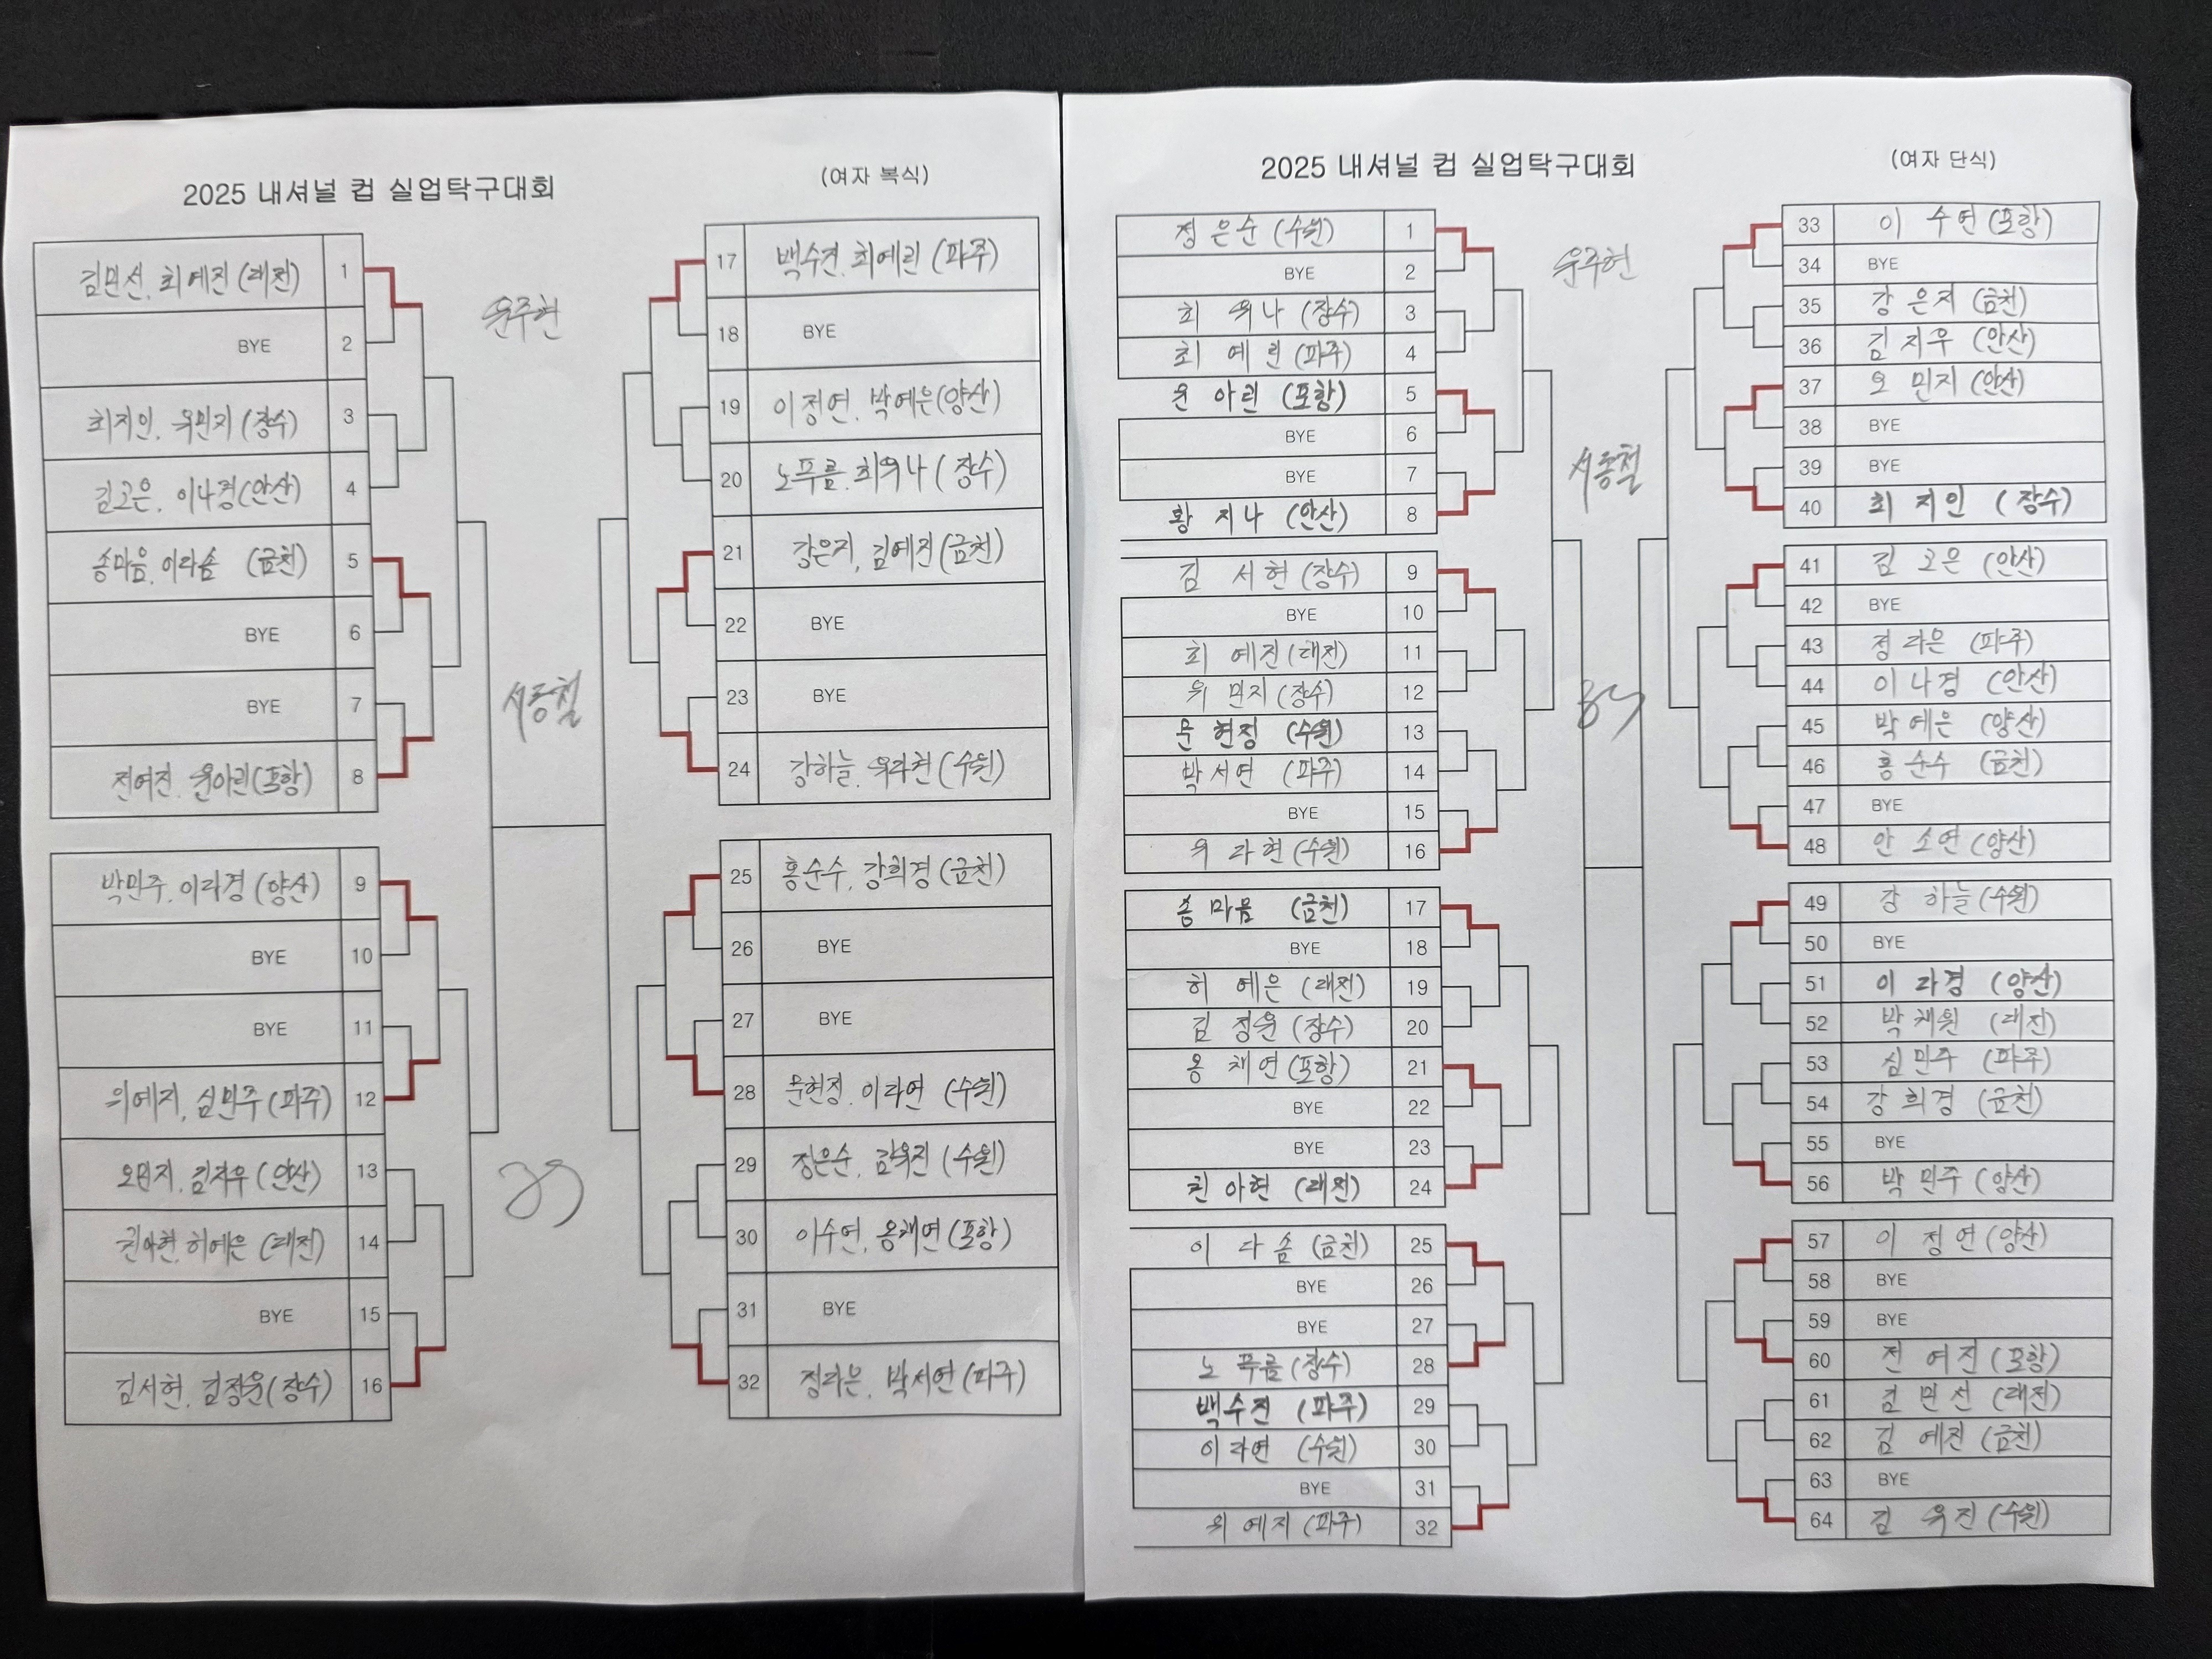 2025 내셔널 컵 실업탁구대회
(여자 복식)
김민선, 최예진 (대전) 1
BYE 2
최지인, 유민지 (장수) 3
김고은, 이나경 (안산) 4
송마음, 이다솜 (금천) 5
BYE 6
BYE 7
전여진, 윤아린 (포항) 8
박민주, 이다경 (양산) 9
BYE 10
BYE 11
위예지, 심민주 (파주) 12
오민지, 김지우 (안산) 13
권아현, 허예은 (대전) 14
BYE 15
김서현, 김정윤 (장수) 16
윤주현
서동철
17 백수진, 최예린 (파주)
18 BYE
19 이정연, 박예은 (양산)
20 노푸름, 최유나 (장수)
21 강은지, 김예진 (금천)
22 BYE
23 BYE
24 강하늘, 유라현 (수원)
25 홍순수, 강희경 (금천)
26 BYE
27 BYE
28 문현정, 이라연 (수원)
29 정은순, 김유진 (수원)
30 이수연, 용채연 (포항)
31 BYE
32 정다은, 박서연 (파주)
2025 내셔널 컵 실업탁구대회
(여자 단식)
정은순 (수원) 1
BYE 2
최유나 (장수) 3
최예린 (파주) 4
윤아린 (포항) 5
BYE 6
BYE 7
황지나 (안산) 8
김서현 (장수) 9
BYE 10
최예진 (대전) 11
유민지 (장수) 12
문현정 (수원) 13
박서연 (파주) 14
BYE 15
유라현 (수원) 16
송마음 (금천) 17
BYE 18
허예은 (대전) 19
김정윤 (장수) 20
용채연 (포항) 21
BYE 22
BYE 23
권아현 (대전) 24
이다솜 (금천) 25
BYE 26
BYE 27
노푸름 (장수) 28
백수진 (파주) 29
이라연 (수원) 30
BYE 31
위예지 (파주) 32
윤주현
서동철
33 이수연 (포항)
34 BYE
35 강은지 (금천)
36 김지우 (안산)
37 오민지 (안산)
38 BYE
39 BYE
40 최지인 (장수)
41 김고은 (안산)
42 BYE
43 정다은 (파주)
44 이나경 (안산)
45 박예은 (양산)
46 홍순수 (금천)
47 BYE
48 안소연 (양산)
49 강하늘 (수원)
50 BYE
51 이다경 (양산)
52 박채원 (대전)
53 심민주 (파주)
54 강희경 (금천)
55 BYE
56 박민주 (양산)
57 이정연 (양산)
58 BYE
59 BYE
60 전여진 (포항)
61 김민선 (대전)
62 김예진 (금천)
63 BYE
64 김유진 (수원)